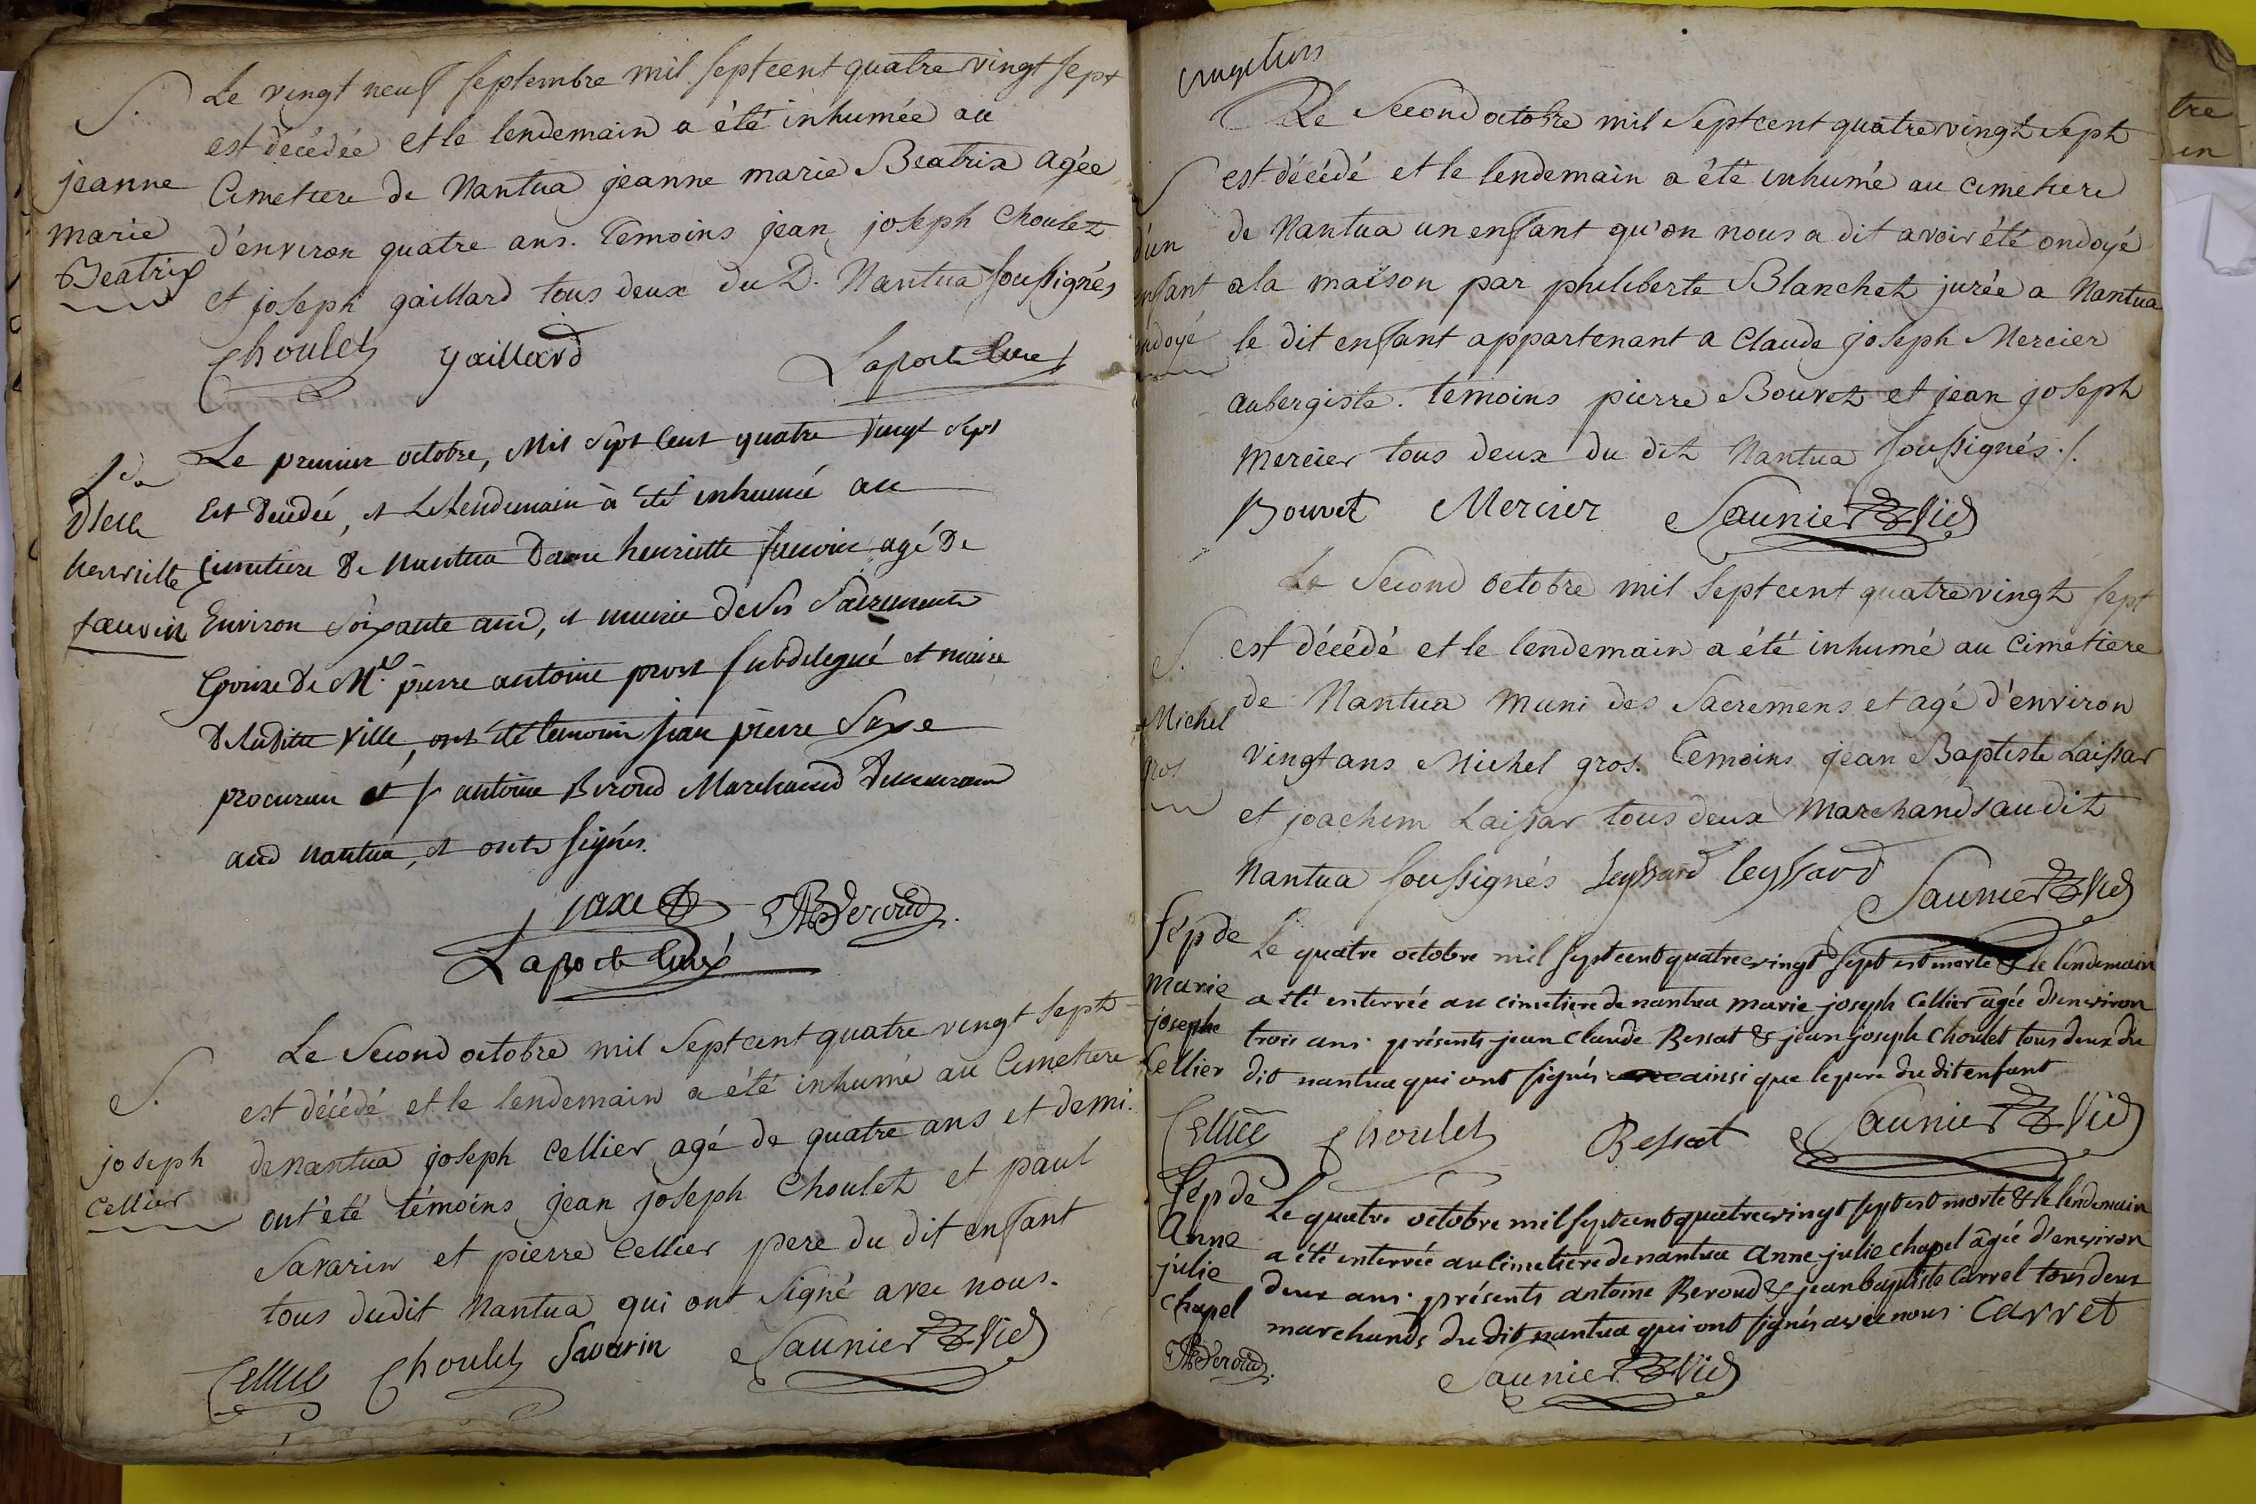 S.
jeanne
marie
Beatrix
Le vingt neuf septembre mil septcent quatre vingt sept
est décédée et le lendemain a été inhumée au
Cimetiere de Nantua jeanne marie Beatrix agée
d'environ quatre ans. Temoins jean joseph Choulet
et joseph gaillard tous deux du D. Nantua soussignés
Choulet gaillard Laporte Curé
Sde
Dlle
henriette
fauvin
Le premier octobre, Mil Sept Cent quatre vingt Sept
Est Decedée, et Le Lendemain à été inhumé au
Cimetiere De Nantua Dame henriette fauvin agé De
Environ Soixante ans, et munie De Ses Sacrements
Epouse De Mr. pierre antoine prost Subdelegué et maire
De Laditte Ville, ont été temoins jean pierre Saxe
procureur et Sr antoine Beroud Marchand Demeurans
aud nantua, et onts signés.
jaxe ABeroud
Laporte Curé
S.
joseph
Cellier
Le Second octobre mil Septcent quatre vingt Sept
est décédé et le lendemain a été inhumé au Cimetiere
de nantua joseph Cellier agé de quatre ans et demi.
ont été témoins jean joseph Choulet et paul
Savarin et pierre Cellier pere du dit enfant
tous dudit Nantua qui ont Signé avec nous.
Cellier Choulet Savarin Saunier Vic
Le Second octobre mil Septcent quatre vingt Sept
S
d'un
enfant
ondoyé
est décédé et le lendemain a été inhumé au cimetiere
de Nantua un enfant qu'on nous a dit avoir été ondoyé
a la maison par philiberte Blanchet jurée a Nantua
le dit enfant appartenant a Claude joseph Mercier
aubergiste. témoins pierre Bouvet et jean joseph
Mercier tous deux du dit Nantua soussignés ./.
Bouvet Mercier Saunier Vic
S.
Michel
gros
Le Second octobre mil Septcent quatre vingt Sept
est décédé et le lendemain a été inhumé au Cimetiere
de Nantua muni des Sacremens et agé d'environ
vingt ans Michel gros. Temoins jean Baptiste Laissar
et joachim Laissar tous deux Marchands audit
Nantua soussignés Leyssard leyssard Saunier Vic
Sép de
Marie
josephe
Cellier
Le quatre octobre mil septcent quatrevingt sept est morte & le lendemain
a été enterrée au cimetiere de nantua marie joseph Cellier âgée d'environ
trois ans. présents jean Claude Bessat & jean joseph Choulet tous deux du
dit nantua qui ont signés ainsi que le pere du dit enfant
Cellier Choulet Bessat Saunier Vic
Sép de
Anne
julie
Chapel
Le quatre octobre mil septcent quatrevingt sept est morte & le lendemain
a été enterrée au cimetiere de nantua Anne julie chapel âgée d'environ
deux ans. présents antoine Beroud & jean baptiste Carrel tous deux
marchands du dit nantua qui ont signés avec nous. Carret
ABeroud Saunier Vic